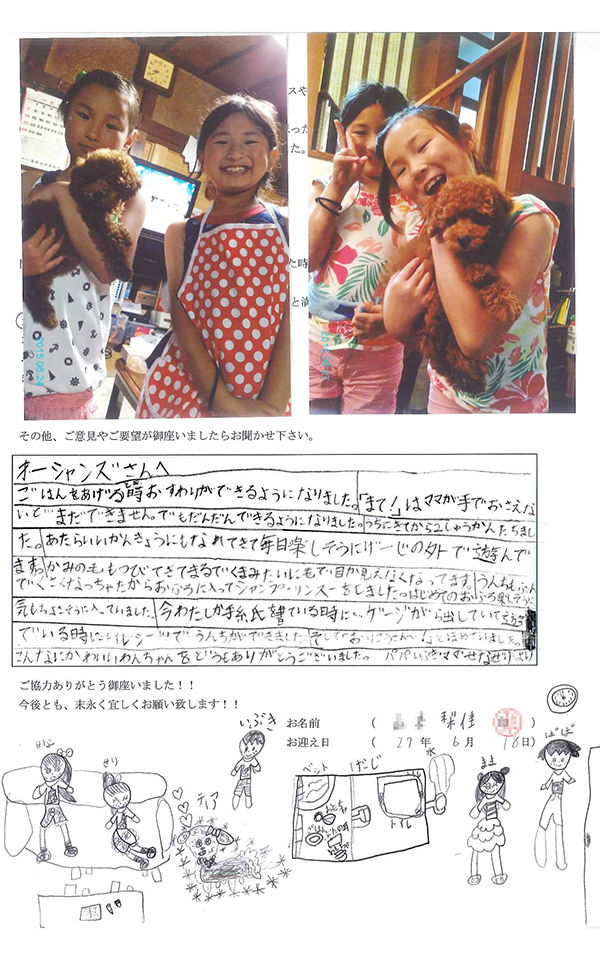 スや
った
た。
た時
と満
2015 06 24
その他、ご意見やご要望が御座いましたらお聞かせ下さい。
オーシャンズさんへ
ごはんをあげる時おすわりができるようになりました。「まて!」はママが手でおさえな
いとまだできません。でもだんだんできるようになりました。うちにきてから2しゅうかんたちまし
た。あたらしいかんきょうにもなれてきて毎日楽しそうにげーじの外で遊んで
ます。かみのもものびてきてまるでくまみたいに毛で目が見えなくなってます。うんちも
でくさくなっちゃたからおふろに入ってシャンプーリンスーをしました。はじめてのおふろ
気もちよさそうに入っていました。今わたしが手紙を書いている時に…ゲージから出していて遊
でいる時にトイレシーツでうんちができました。そして「おりこうさん〜」とほめていました。
こんなにかわいいわんちゃんをどうもありがとうございました。パパいぶきママせなせりより
ご協力ありがとう御座いました!!
今後とも、末永く宜しくお願い致します!!
お名前 ( 梨佳 )
お迎え日 ( 27年 6月 18日)
いぶき
ぱぱ
せな
せり
ティア
ベット
げーじ
水
トイレ
まま